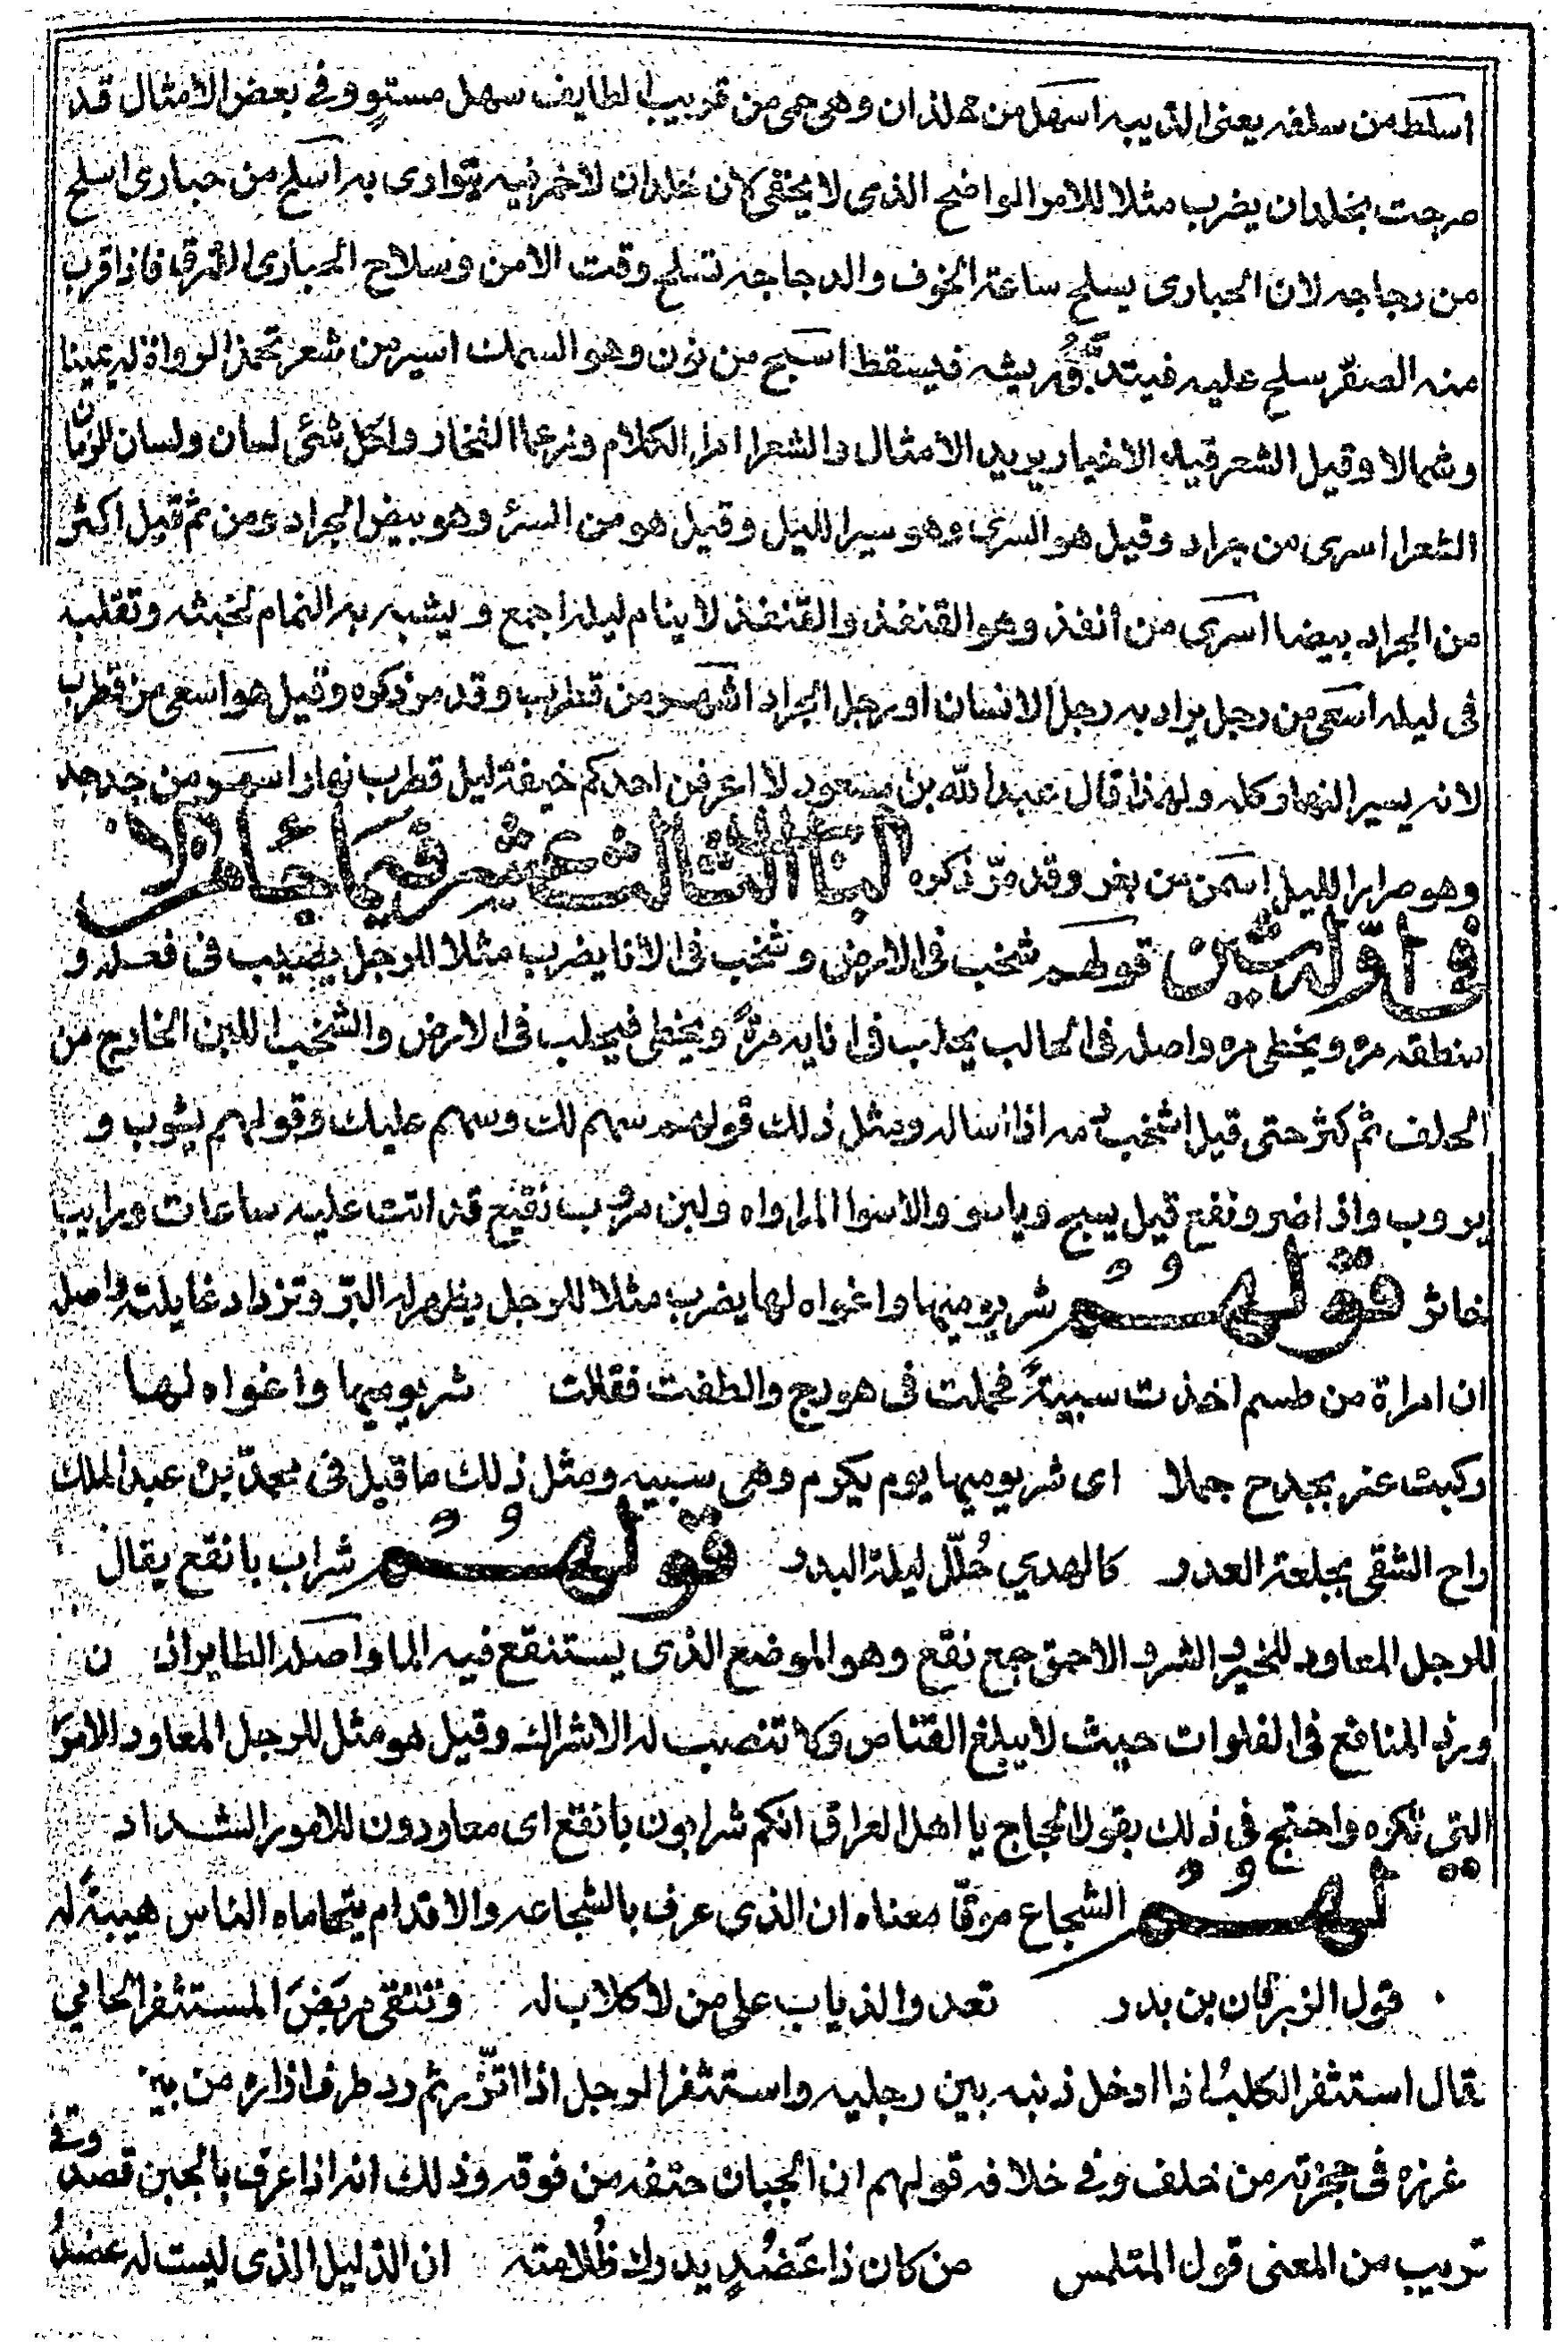 اسلط من سلفه يعنى الذيبه اسهل من جلذان وهى حمى من قريب الطايف سهل مستوٍ وفى بعض الامثال قد
صرحت بجلدان يضرب مثلا للامر الواضح الذى لا يخفى لان جلدان لا خمر فيه يتوارى به اسلح من حبارى اسلح
من دجاجه لان الحبارى يسلح ساعة الخوف والدجاجه تسلح وقت الامن وسلاح الحبارى الزرق فاذا قرب
منه الصقر سلح عليه فيتدبق ريشه فيسقط اسبح من نون وهو السمك اسير من شعر تحمذ الرواة له يمينا
وشمالا وقيل الشعر قيد الاخبار بريد الامثال والشعرا امرا الكلام وزعما الفخار ولكل شئى لسان ولسان الزمان
الشعرا اسرى من جراد وقيل هو السرى وهو سير الليل وقيل هو من السرء وهو بيض الجراد ومن ثم قيل اكثر
من الجراد بيضا اسرى من أنفذ وهو القنفذ والقنفذ لا ينام ليله اجمع ويشبه به النمام لخبثه وتقلبه
فى ليله اسعى من رجل يراد به رجل الانسان او رجل الجراد اشهر من قطرب وقد مر ذكره وقيل هو اسعى من قطرب
لانه يسير النهار كله ولهذا قال عبد الله بن مسعود لا اعرفن احدكم جيفة ليل قطرب نهار اسهر من جدجد
وهو صرار الليل اسمن من يغر وقد مرّ ذكره الباب الثالث عشر فيما جا من الا
فى اوّله شين قولهم شخب فى الارض وشخب فى الانا يضرب مثلا للرجل يصيب فى فعله و
منطقه مره ويخطى مره واصله فى الحالب يحلب فى انايه مرةً ويخطى فيحلب فى الارض والشخب اللبن الخارج من
الخلف ثم كثر حتى قيل اشخب دمه اذا اساله ومثل ذلك قولهم سهم لك وسهم عليك وقولهم يشوب و
يروب واذا ضر ونفع قيل يسبح وياسو والاسو المداواه ولبن مروب نقيع قد اتت عليه ساعات ورايب
خاثر قولهم شر يوميها واغواه لها يضرب مثلا للرجل يظهر له البر وتزداد غايلته واصله
ان امراة من طسم اخذت سبيةً فحملت فى هودج والطفت فقالت شر يوميها واغواه لها
ركبت عنز بجدح جملا اى شر يوميها يوم يكرم وهى سبيه ومثل ذلك ما قيل فى محمد بن عبد الملك
راح الشقى بخلعة العدر كالهدي جُلّل ليلة البدر قولهم شراب بانقع يقال
للرجل المعاود للخير والشر والاحمق جمع نقع وهو الموضع الذى يستنقع فيه الما واصله الطاير اذ ن
ورد المناقع فى الفلوات حيث لا يبلغ القناص ولا تنصب له الاشراك وقيل هو مثل للرجل المعاود الامور
التى تكره واحتج فى ذلك بقول الحجاج يا اهل العراق انكم شرابون بانقع اى معاودون للامور الشداد
لهم الشجاع موقّا معناه ان الذى عرف بالشجاعه والاقدام يتحاماه الناس هيبةً له
قول الزبرقان بن بدر تعدو الذياب على من لا كلاب له وتتقى مربض المستثفر الحامي
يقال استثفر الكلب اذا ادخل ذنبه بين رجليه واستثفر الرجل اذا اتّزر ثم رد طرف ازاره من بين
غرزه فى حجزته من خلف وفى خلافه قولهم ان الجبان حتفه من فوقه وذلك انه اذا عرف بالجبن قصد وفى
قريب من المعنى قول المتلمس من كان ذا عَضُدٍ يدرك ظُلامته ان الذليل الذى ليست له عضدُ